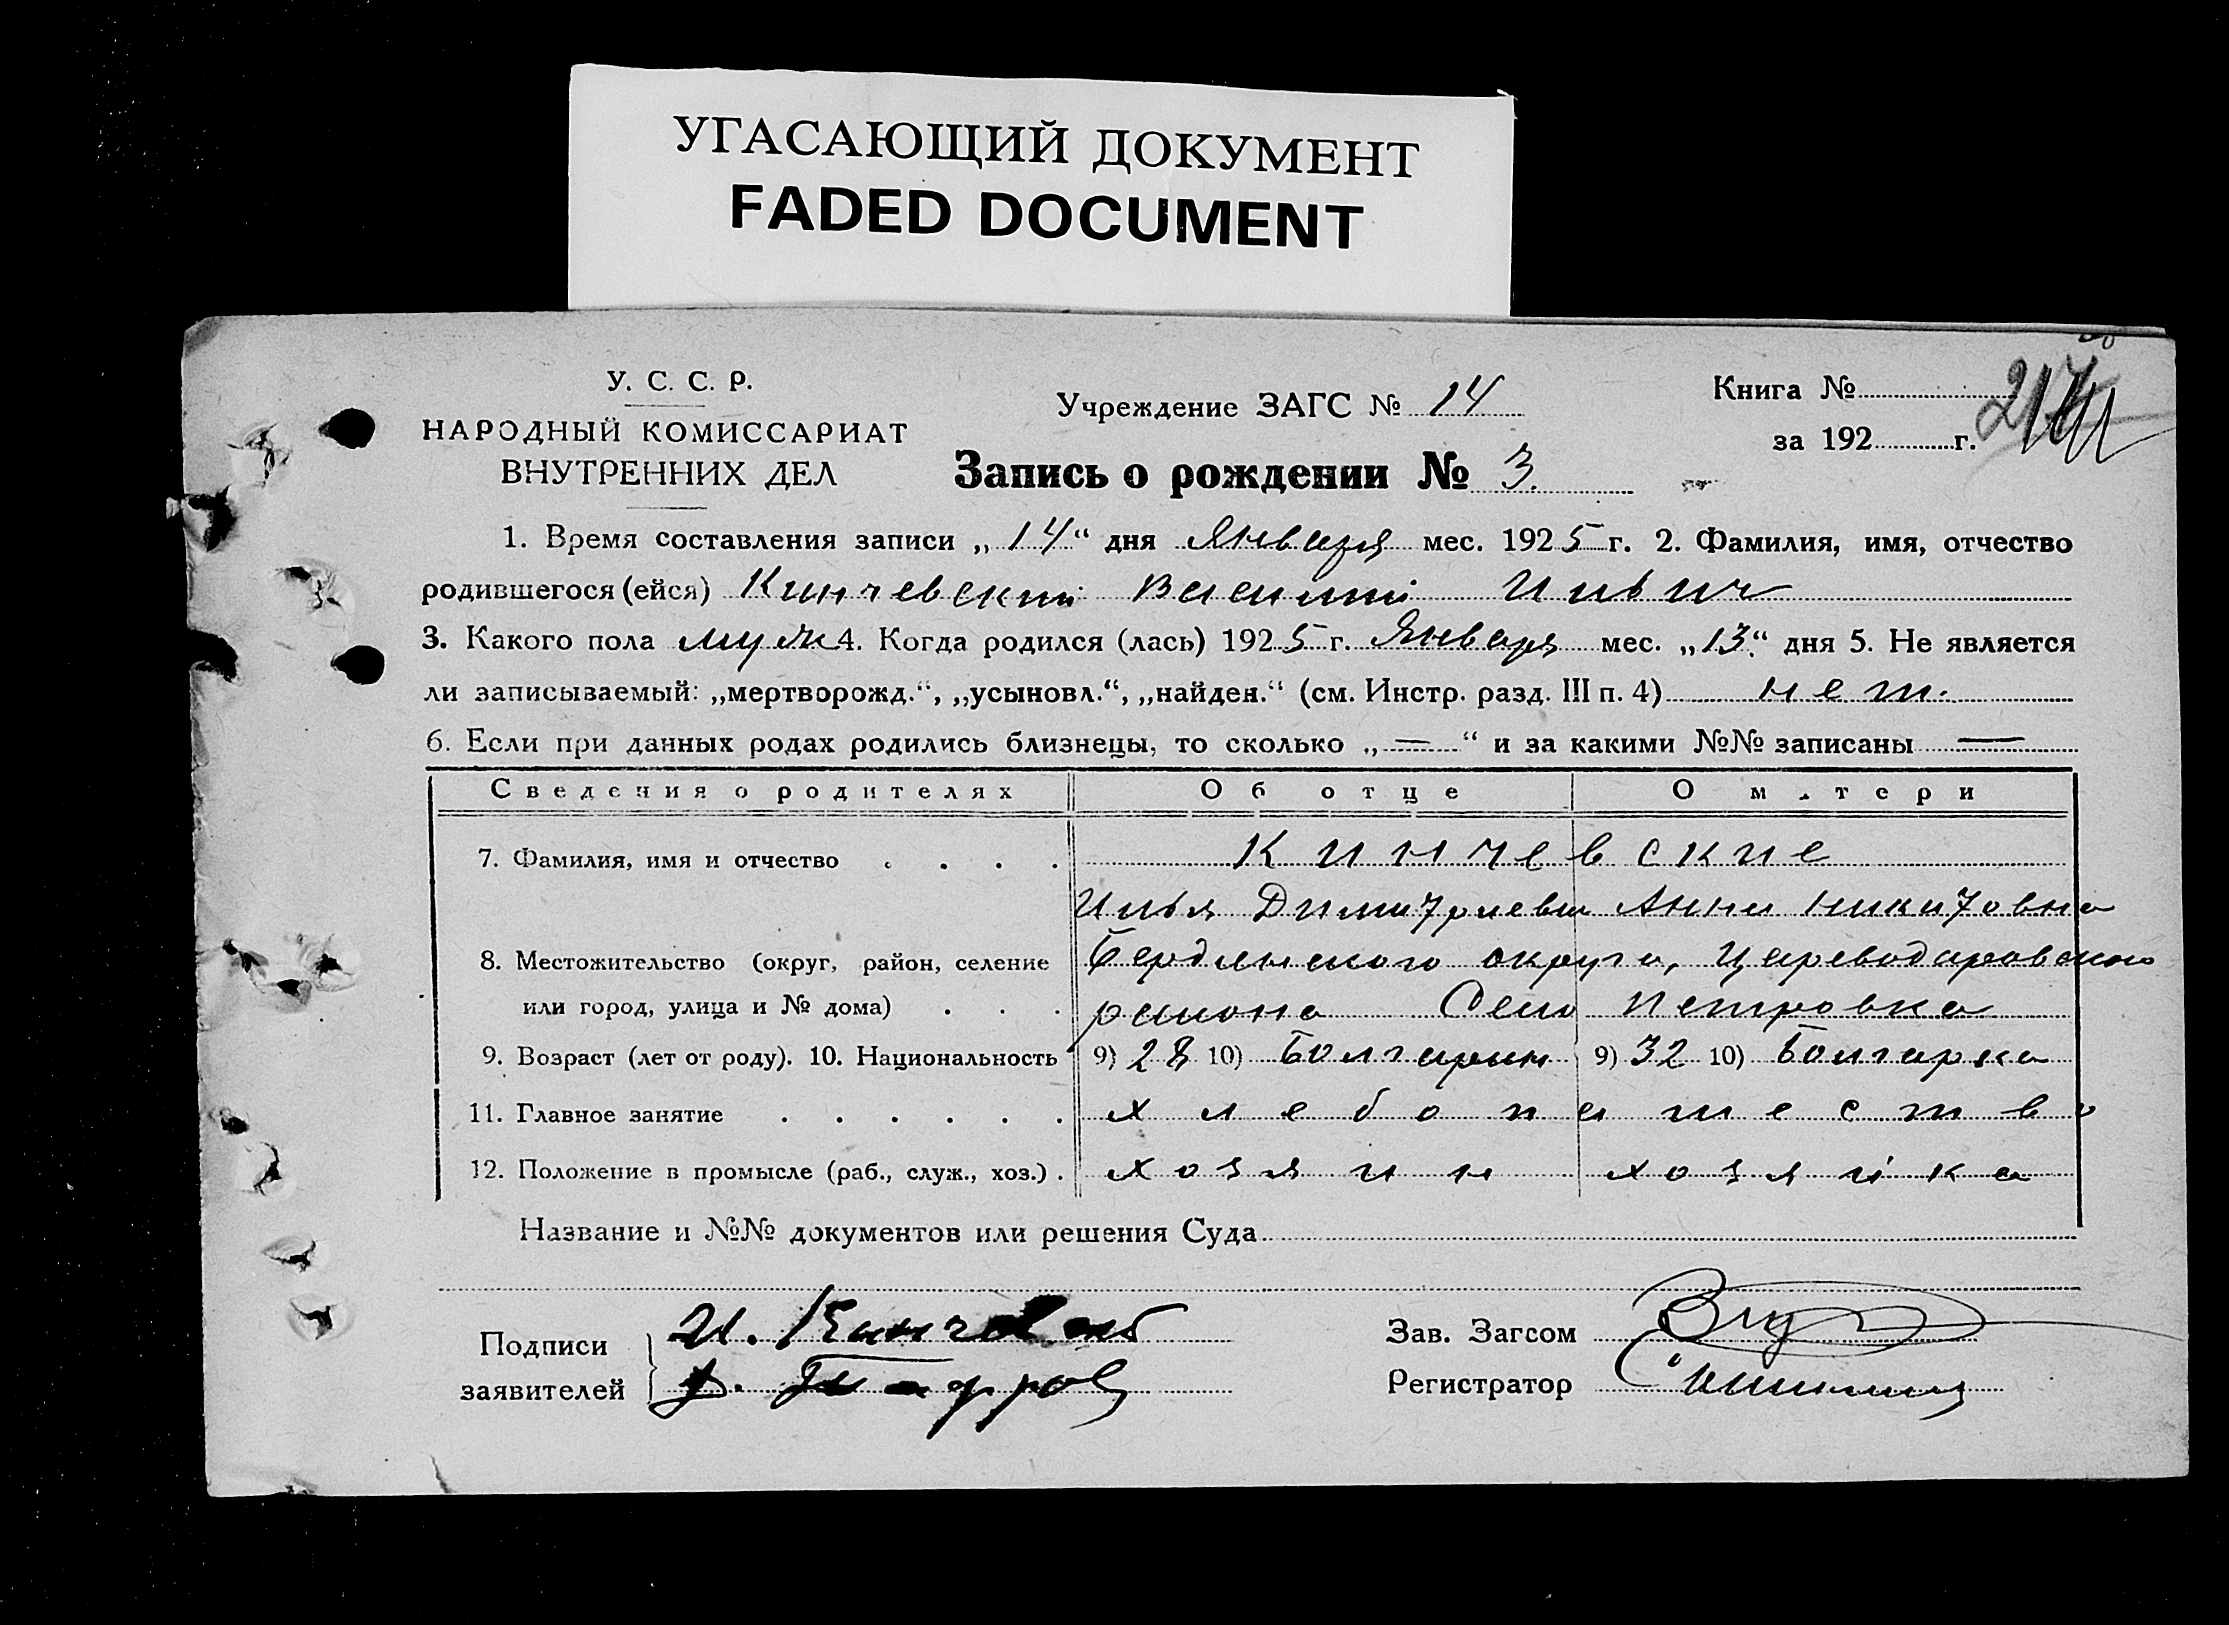 УГАСАЮЩИЙ ДОКУМЕНТ
FADED DOCUMENT
У. С. С. Р.
НАРОДНЫЙ КОМИССАРИАТ
ВНУТРЕННИХ ДЕЛ
Учреждение ЗАГС № 14
Запись о рождении № 3.
Книга №
за 192 г.
1. Время составления записи „14“ дня Января мес. 1925 г. 2. Фамилия, имя, отчество
родившегося (ейся) Кинчевский Василий Ильич
3. Какого пола муж 4. Когда родился (лась) 1925 г. Января мес. „13.“ дня 5. Не является
ли записываемый: „мертворожд.“, „усыновл.“, „найден.“ (см. Инстр. разд. III п. 4) нет.
6. Если при данных родах родились близнецы, то сколько „—“ и за какими №№ записаны —
Сведения о родителях Об отце О матери
7. Фамилия, имя и отчество . . . . Кинчевские
Илья Димитриевич Анна Никитовна
8. Местожительство (округ, район, селение Бердянского округа, Цареводаровского
или город, улица и № дома) . . . района Село Петровка
9. Возраст (лет от роду). 10. Национальность 9) 28 10) Болгарин 9) 32 10) Болгарка
11. Главное занятие . . . . . . хлебопашество
12. Положение в промысле (раб., служ., хоз.) . хозяин хозяйка
Название и №№ документов или решения Суда
Подписи
заявителей
И.
Зав. Загсом
Регистратор